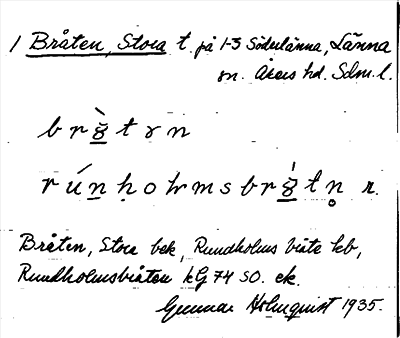 1 Bråten, Stora t. på 1-3 Söderlänna, Länna
sn. Åkers hd. Sdm. l.
Bråten, Stora bek, Rundholms bråte kb,
Rundholmsbråten kG 74 SO. ek.
Gunnar Holmquist 1935.